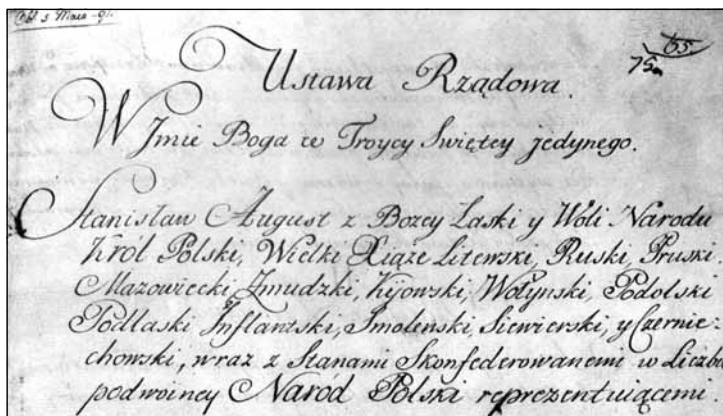 Obl. 5 Maia -91.
65.
75a
Ustawa Rządowa.
W Jmie Boga w Troycy Swiętey jedynego.
Stanisław August z Bozey Łaski y Woli Narodu
Krol Polski, Wielki Xiąze Litewski, Ruski, Pruski.
Mazowiecki, Zmudzki, Kijowski, Wołynski, Podolski
Podlaski Jnflantski, Smolenski, Siewierski, y Czernie:
chowski, wraz z Stanami Skonfederowanemi w Liczbie
podwoiney Narod Polski reprezentuiącemi.